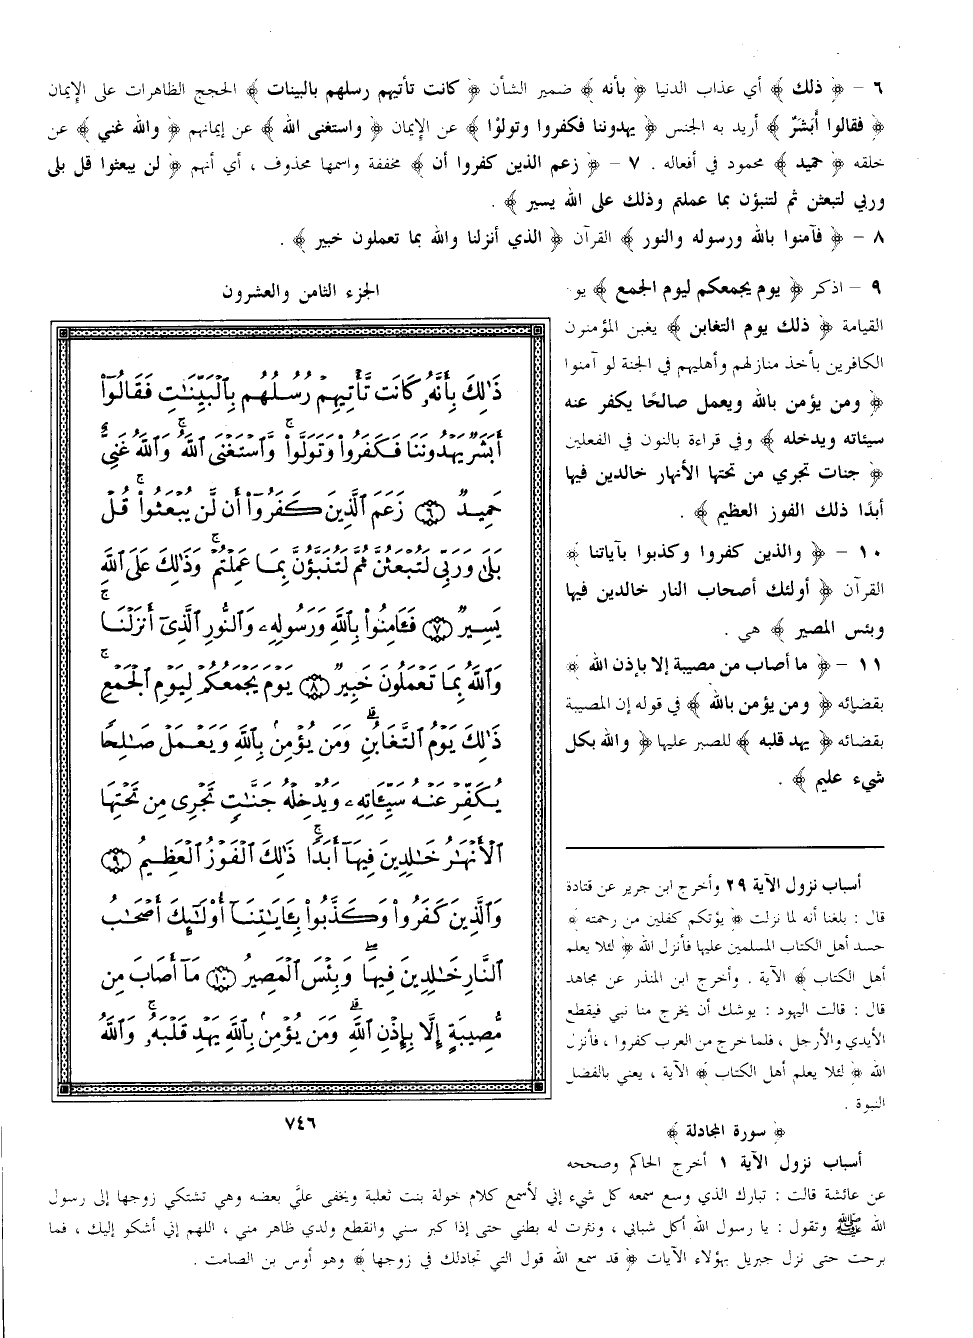 ٦ - ﴿ ذلك ﴾ أي عذاب الدنيا ﴿ بأنه ﴾ ضمير الشأن ﴿ كانت تأتيهم رسلهم بالبينات ﴾ الحجج الظاهرات على الإيمان
﴿ فقالوا أَبَشَرٌ ﴾ أريد به الجنس ﴿ يهدوننا فكفروا وتولوْا ﴾ عن الإيمان ﴿ واستغنى الله ﴾ عن إيمانهم ﴿ والله غني ﴾ عن
خلقه ﴿ حميد ﴾ محمود في أفعاله . ٧ - ﴿ زعم الذين كفروا أن ﴾ مخففة واسمها محذوف ، أي أنهم ﴿ لن يبعثوا قل بلى
وربي لتبعثن ثم لتنبؤن بما عملتم وذلك على الله يسير ﴾ .
٨ - ﴿ فآمنوا بالله ورسوله والنور ﴾ القرآن ﴿ الذي أنزلنا والله بما تعملون خبير ﴾ .
٩ - اذكر ﴿ يوم يجمعكم ليوم الجمع ﴾ يو
القيامة ﴿ ذلك يوم التغابن ﴾ يغبن المؤمنون
الكافرين بأخذ منازلهم وأهليهم في الجنة لو آمنوا
﴿ ومن يؤمن بالله ويعمل صالحًا يكفر عنه
سيئاته ويدخله ﴾ وفي قراءة بالنون في الفعلين
﴿ جنات تجري من تحتها الأنهار خالدين فيها
أبدًا ذلك الفوز العظيم ﴾ .
١٠ - ﴿ والذين كفروا وكذبوا بآياتنا ﴾
القرآن ﴿ أولئك أصحاب النار خالدين فيها
وبئس المصير ﴾ هي .
١١ - ﴿ ما أصاب من مصيبة إلا بإذن الله ﴾
بقضائه ﴿ ومن يؤمن بالله ﴾ في قوله إن المصيبة
بقضائه ﴿ يهد قلبه ﴾ للصبر عليها ﴿ والله بكل
شيء عليم ﴾ .
الجزء الثامن والعشرون
ذَٰلِكَ بِأَنَّهُۥ كَانَت تَّأْتِيهِمْ رُسُلُهُم بِٱلْبَيِّنَٰتِ فَقَالُوٓا۟
أَبَشَرٌ يَهْدُونَنَا فَكَفَرُوا۟ وَتَوَلَّوا۟ ۚ وَّٱسْتَغْنَى ٱللَّهُ ۚ وَٱللَّهُ غَنِىٌّ
حَمِيدٌ ﴿٦﴾ زَعَمَ ٱلَّذِينَ كَفَرُوٓا۟ أَن لَّن يُبْعَثُوا۟ ۚ قُلْ
بَلَىٰ وَرَبِّى لَتُبْعَثُنَّ ثُمَّ لَتُنَبَّؤُنَّ بِمَا عَمِلْتُمْ ۚ وَذَٰلِكَ عَلَى ٱللَّهِ
يَسِيرٌ ﴿٧﴾ فَـَٔامِنُوا۟ بِٱللَّهِ وَرَسُولِهِۦ وَٱلنُّورِ ٱلَّذِىٓ أَنزَلْنَا ۚ
وَٱللَّهُ بِمَا تَعْمَلُونَ خَبِيرٌ ﴿٨﴾ يَوْمَ يَجْمَعُكُمْ لِيَوْمِ ٱلْجَمْعِ ۖ
ذَٰلِكَ يَوْمُ ٱلتَّغَابُنِ ۗ وَمَن يُؤْمِنۢ بِٱللَّهِ وَيَعْمَلْ صَٰلِحًا
يُكَفِّرْ عَنْهُ سَيِّـَٔاتِهِۦ وَيُدْخِلْهُ جَنَّٰتٍ تَجْرِى مِن تَحْتِهَا
ٱلْأَنْهَٰرُ خَٰلِدِينَ فِيهَآ أَبَدًا ۚ ذَٰلِكَ ٱلْفَوْزُ ٱلْعَظِيمُ ﴿٩﴾
وَٱلَّذِينَ كَفَرُوا۟ وَكَذَّبُوا۟ بِـَٔايَٰتِنَآ أُو۟لَٰٓئِكَ أَصْحَٰبُ
ٱلنَّارِ خَٰلِدِينَ فِيهَا ۖ وَبِئْسَ ٱلْمَصِيرُ ﴿١٠﴾ مَآ أَصَابَ مِن
مُّصِيبَةٍ إِلَّا بِإِذْنِ ٱللَّهِ ۗ وَمَن يُؤْمِنۢ بِٱللَّهِ يَهْدِ قَلْبَهُۥ ۚ وَٱللَّهُ
٧٤٦
أسباب نزول الآية ٢٩ وأخرج ابن جرير عن قتادة
قال : بلغنا أنه لما نزلت ﴿ يؤتكم كفلين من رحمته ﴾
حسد أهل الكتاب المسلمين عليها فأنزل الله ﴿ لئلا يعلم
أهل الكتاب ﴾ الآية . وأخرج ابن المنذر عن مجاهد
قال : قالت اليهود : يوشك أن يخرج منا نبي فيقطع
الأيدي والأرجل ، فلما خرج من العرب كفروا ، فأنزل
الله ﴿ لئلا يعلم أهل الكتاب ﴾ الآية ، يعني بالفضل
النبوة .
﴿ سورة المجادلة ﴾
أسباب نزول الآية ١ أخرج الحاكم وصححه
عن عائشة قالت : تبارك الذي وسع سمعه كل شيء إني لأسمع كلام خولة بنت ثعلبة ويخفى عليَّ بعضه وهي تشتكي زوجها إلى رسول
الله ﷺ وتقول : يا رسول الله أكل شبابي ، ونثرت له بطني حتى إذا كبر سني وانقطع ولدي ظاهر مني ، اللهم إني أشكو إليك ، فما
برحت حتى نزل جبريل بهؤلاء الآيات ﴿ قد سمع الله قول التي تجادلك في زوجها ﴾ وهو أوس بن الصامت .